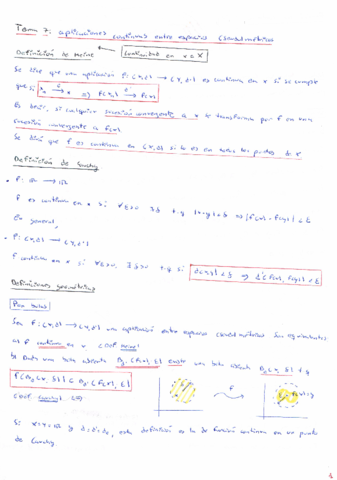 Tema 7: aplicaciones continuas entre espacios (seudo)métricos
Definición de Heine
Continuidad en x ∈ X
Se dice que una aplicación f: (X,d) → (Y,d') es continua en x si se cumple
que si xₙ →d x ⇒ f(xₙ) →d' f(x)
Es decir, si cualquier sucesión convergente a x se transforma por f en una
sucesión convergente a f(x).
Se dirá que f es continua en (X,d) si lo es en todos los puntos de X
Definición de Cauchy
• f: ℝ → ℝ
f es continua en x si ∀ε>0 ∃δ t.q |x-y|<δ ⇒ |f(x)-f(y)|<ε
En general,
• f: (X,d) → (Y,d')
f continua en x si ∀ε>0, ∃δ>0 t.q si d(x,y)<δ ⇒ d'(f(x),f(y))<ε
Definiciones geométricas
Por bolas
Sea f: (X,d) → (Y,d') una aplicación entre espacios (seudo)métricos. Son equivalentes
a) f continua en x (DEF Heine)
b) Dada una bola abierta B_d'(f(x),ε) existe una bola abierta B_d(x,δ) t.q
f(B_d(x,δ)) ⊆ B_d'(f(x),ε)
(DEF Cauchy)
f
Si X=Y=ℝ y d=d'=dₑ, esta definición es la de función continua en un punto
de Cauchy.
1